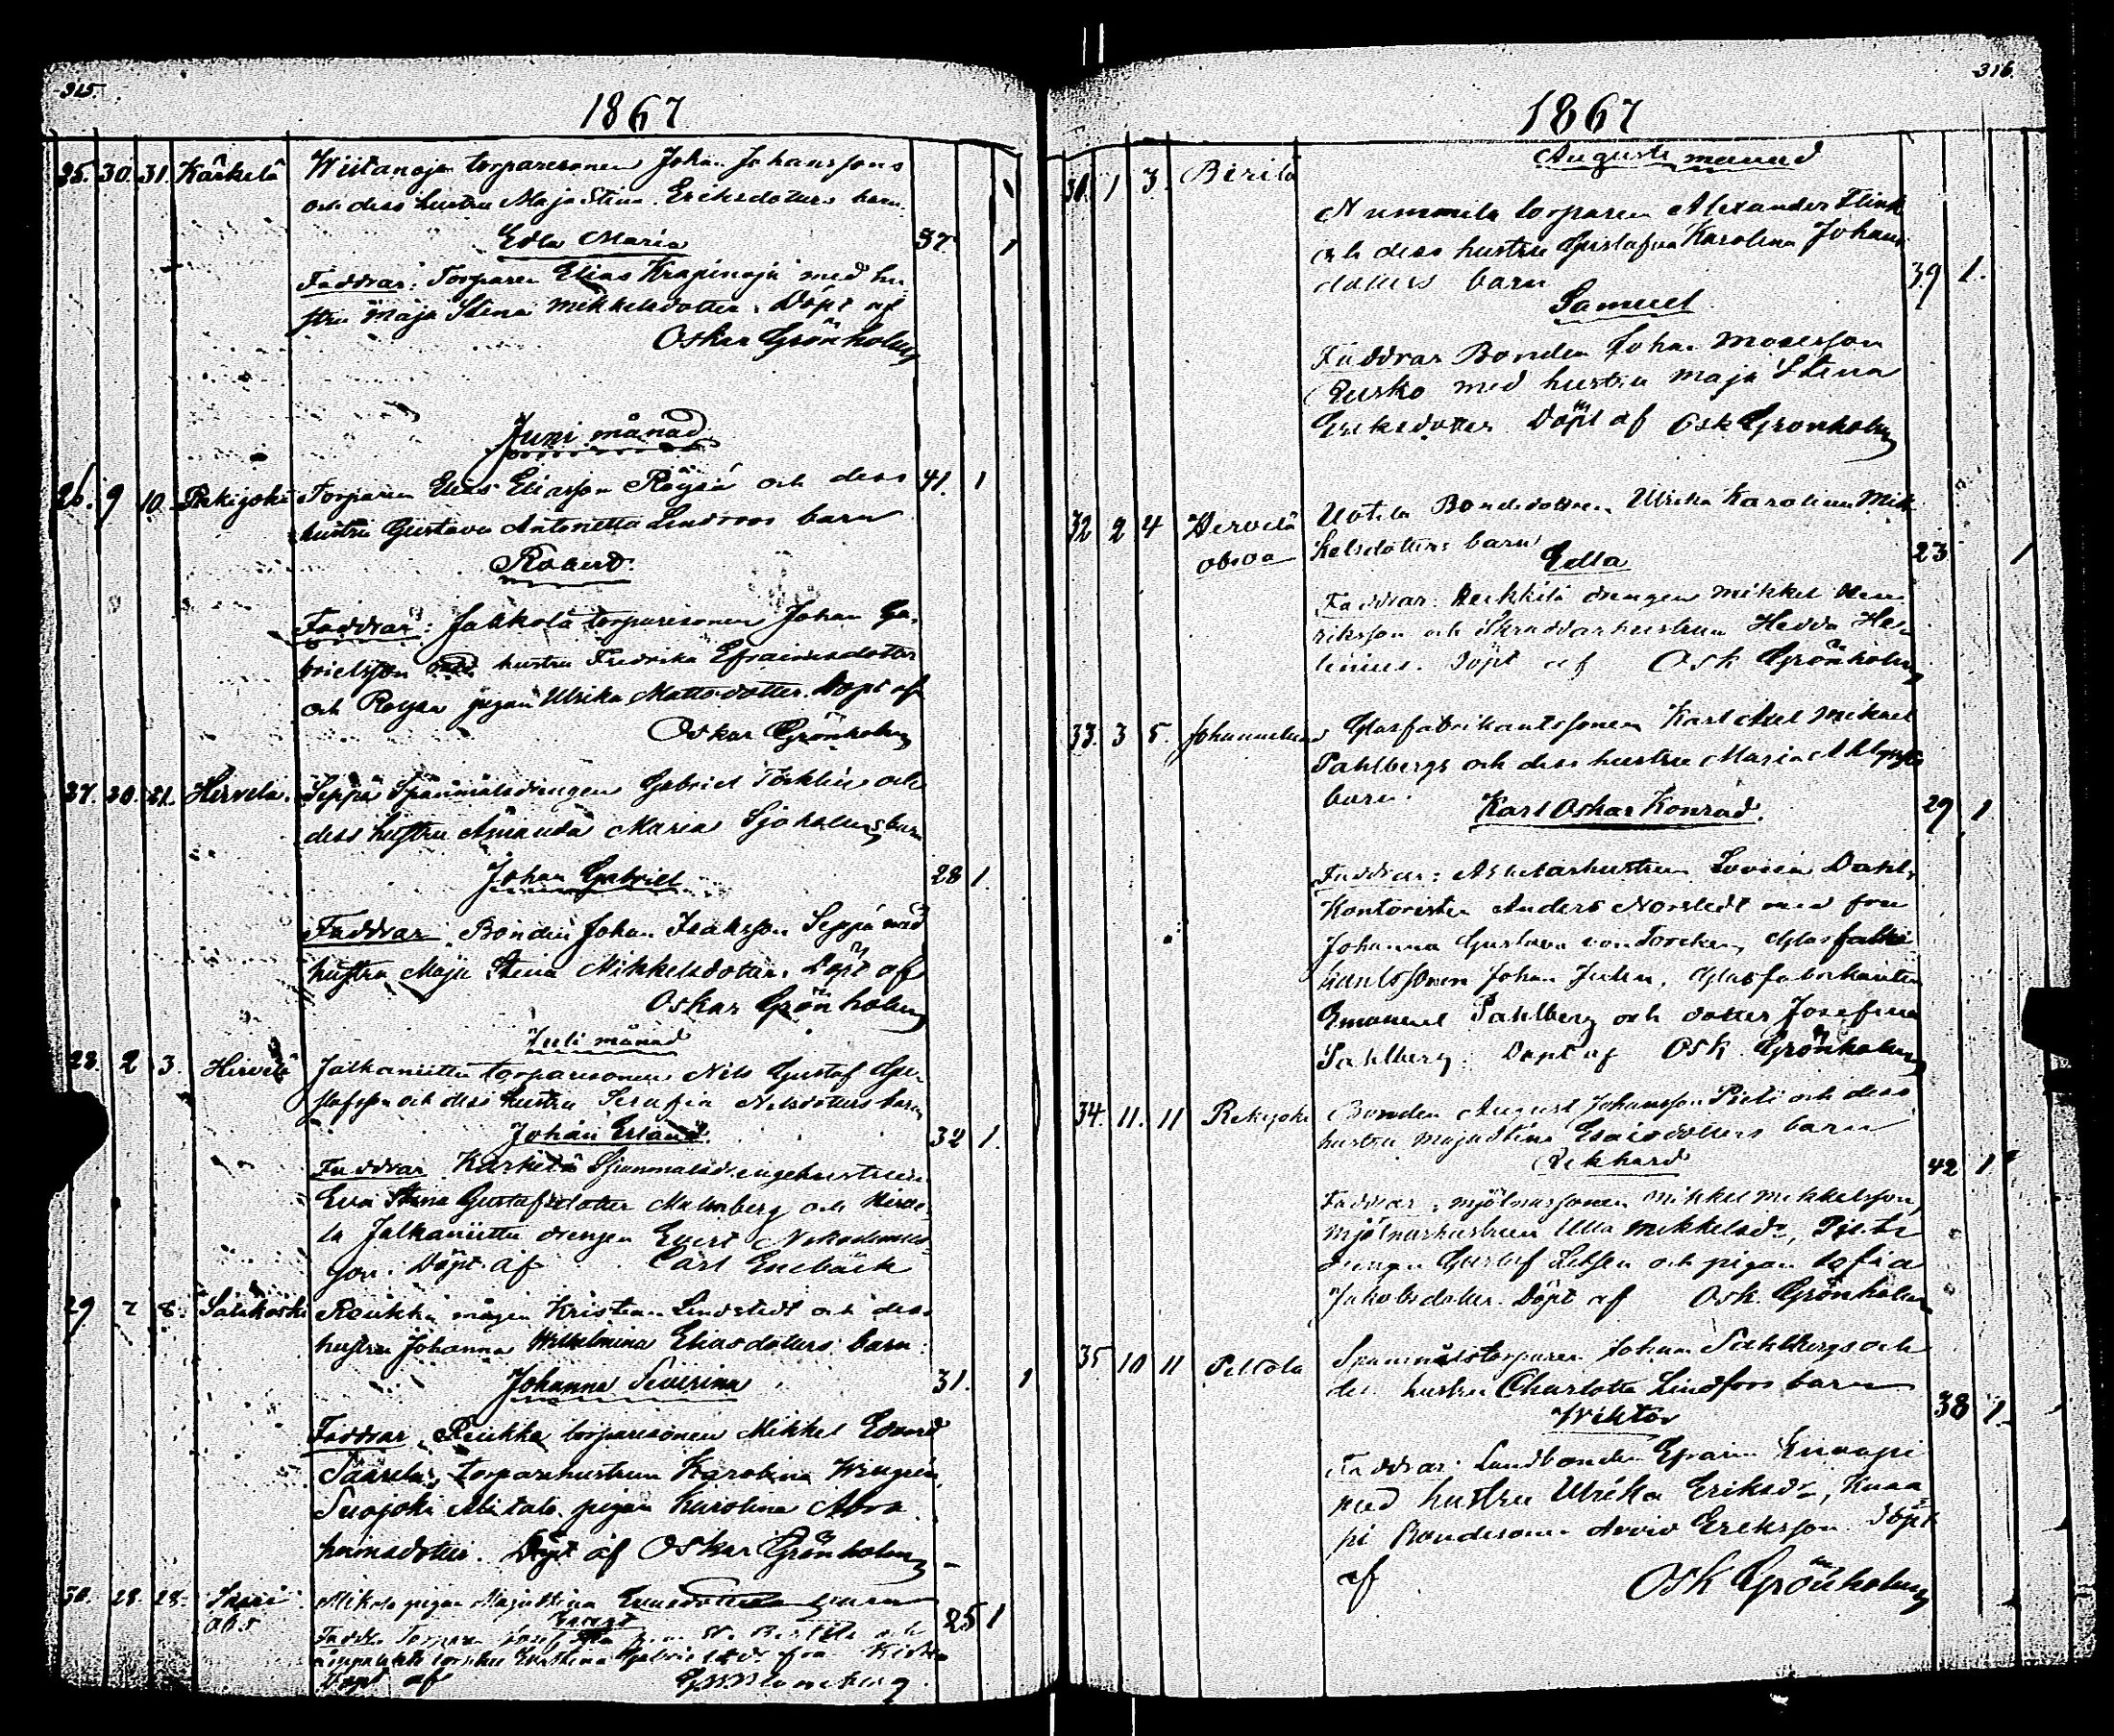 315.
1867
25. 30. 31. Kärkelä Wiitanoja torparesonen Johan Johanssons
och dess hustru Maja Stina Eriksdotters barn
Edla Maria 37. 1
Faddrar: Torparen Elias Krapinoja med hu-
stru Maja Stina Mikkelsdotter. Döpt af
Oskar Grönholm
Juni månad
26. 9 10. Rekijoki Torparen Elias Eliasson Röysä och dess 41. 1
hustru Gustava Antonetta Lindroos barn
Robert.
Faddrar: Jakkola torparesonen Johan Ga-
brielsson med hustru Fredrika Efraimsdotter
och Röysä pigan Ulrika Mattsdotter. Döpt af
Oskar Grönholm
27. 20. 21. Hirvelä. Seppä Spånmålsdrengen Gabriel och
dess hustru Amanda Maria Sjöholms barn
Johan Gabriel 28 1.
Faddrar. Bonden Johan Isaksson Seppä med
hustru Maja Stina Mikkelsdotter. Döpt af
Oskar Grönholm
Juli månad
28. 2 3. Hirvelä Jalkaniittu torparesonen Nils Gustaf Gu-
stafsson och dess hustru Serafia Nilsdotters barn
Johan Erland. 32 1.
Faddrar Kärkelä
Eva Stina Gustafsdotter Malmberg och Hirve-
lä Jalkaniittu drengen Evert
son. Döpt af Carl Enebäck
29 7 8. Salakoski Reukka mågen Kristian Lindstedt och dess
hustru Johanna Wilhelmina Eliasdotters barn.
Johanna Severina 31. 1
Faddrar. Reukka torparesonen Mikkel Edvard
Saarela, torparehustrun Karolina Wingrén,
Suojoki Alitalo pigan Karolina Abra-
hamsdotter. Döpt af Oskar Grönholm
30. 28. 28. pigan Maja Stina barn
25 1
Torparen och
Döpt af
316.
1867
Augusti månad
31. 1 3. Pirilä
Nummela torparen Alexander Flink
och dess hustru Gustafva Karolina Johans
dotters barn 39 1.
Samuel
Faddrar Bonden Johan Mosesson
Rusko med hustru Maja Stina
Eriksdotter. Döpt af Osk Grönholm
32 2 4 Hirvelä Uotila Bondedottern Ulrika Karolina Mik
obs oä kelsdotters barn 23. 1
Edla
Faddrar: Heikkilä drengen Mikkel Hen
riksson och Skräddarhustrun Hedda He-
lenius. Döpt af Osk Grönholm
33. 3 5. Johanneslund Glasfabrikantssonen Karl Axel Mikael
Pahlbergs och dess hustru Maria
barn.
Karl Oskar Konrad. 29 1
Faddrar: hustrun Lovisa Dahl,
Kontoristen Anders Norstedt med fru
Johanna Gustava von Torcken, Glasfabri
kantssonen Johan Julin, Glasfabrikanten
Emanuel Pahlberg och dotter Josefina
Pahlberg. Döpt af Osk Grönholm
34. 11. 11 Rekijoki Bonden August Johansson Pieti och dess
hustru Maja Stina Esaiasdotters barn
Rikhard 42 1
Faddrar: mjölnarsonen Mikkel Mikkelsson,
mjölnarhustrun Ulla Mikkelsdr, Pieti
drengen Gustaf och pigan Sofia
Jakobsdotter. Döpt af Osk. Grönholm
35 10 11 Peltola Spånmålstorparen Johan Sahlbergs och
des hustru Charlotta Lindfors barn
Wiktor 38 1.
Faddrar: Landbonden Efraim Knaapi
med hustru Ulrika Eriksdr, Knaa
pi Bondesonen Arvid Eriksson. Döpt
af Osk Grönholm